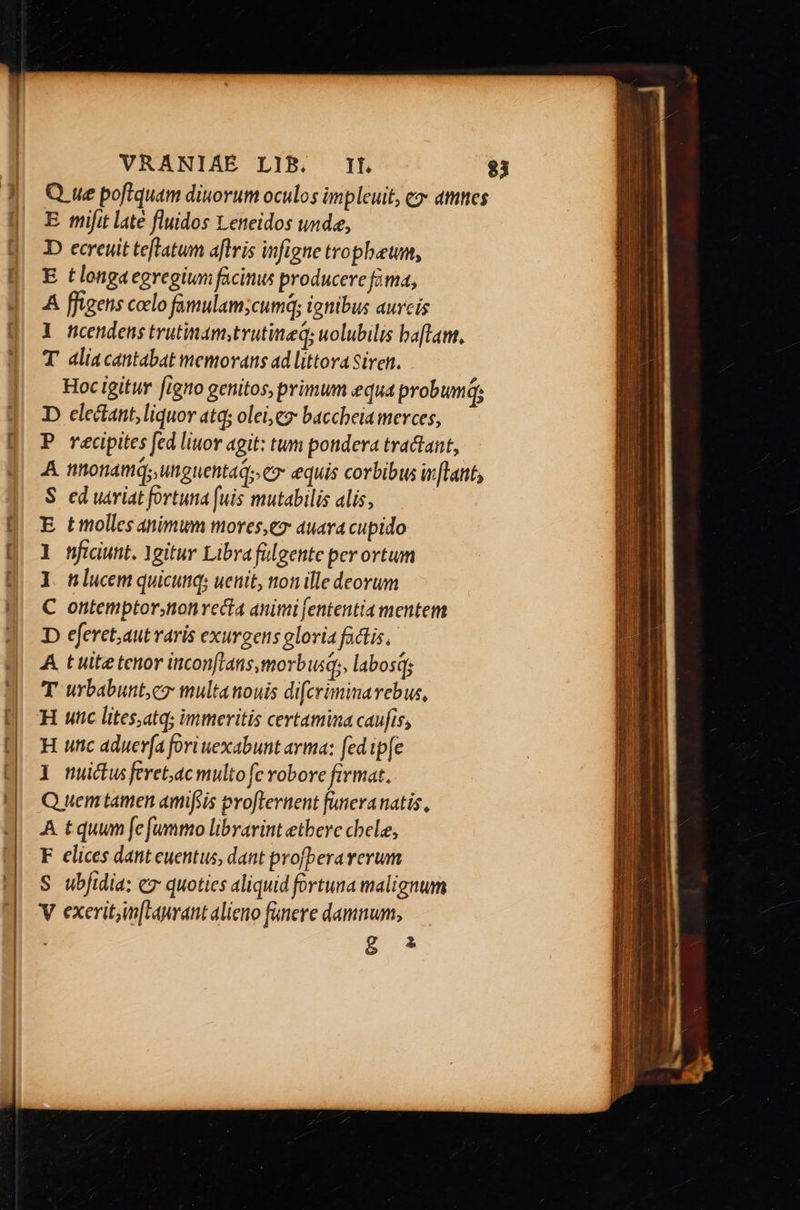 VRANIAE LIB. II. 83
Q ue poſtquam diuorum oculos impleuit, & amnes
E miſit latè fluidos Leneidos undæ,
D ecreuit teſtatum aſtris inſigne trophæum,
E t longa egregium facinus producere fama,
A ffigens cœlo famulam;cumq; ignibus aureis
I ncendens trutinam,trutinæq; uolubilis haſtam,
T alia cantabat memorans ad littora Siren.
Hoc igitur ſigno genitos, primum æqua probumq;
D electant, liquor atq; olei, & baccheia merces,
P ræcipites ſed liuor agit: tum pondera tractant,
A nnonamq;,unguentaq;,& æquis corbibus inſtant,
S ed uariat fortuna ſuis mutabilis alis,
E t molles animum mores,& auara cupido
I nficiunt. Igitur Libra fulgente per ortum
I n lucem quicunq; uenit, non ille deorum
C ontemptor,non recta animi ſententia mentem
D eſeret,aut raris exurgens gloria factis.
A t uitæ tenor inconſtans,morbusq;, labosq;
T urbabunt,& multa nouis diſcrimina rebus,
H unc lites,atq; immeritis certamina cauſis,
H unc aduerſa fori uexabunt arma: ſed ipſe
I nuictus feret,ac multo ſe robore firmat.
Q uem tamen amiſsis proſternent funera natis,
A t quum ſe ſummo librarint æthere chelæ,
F elices dant euentus, dant proſpera rerum
S ubſidia: & quoties aliquid fortuna malignum
V exerit,inſtaurant alieno funere damnum,
g 2